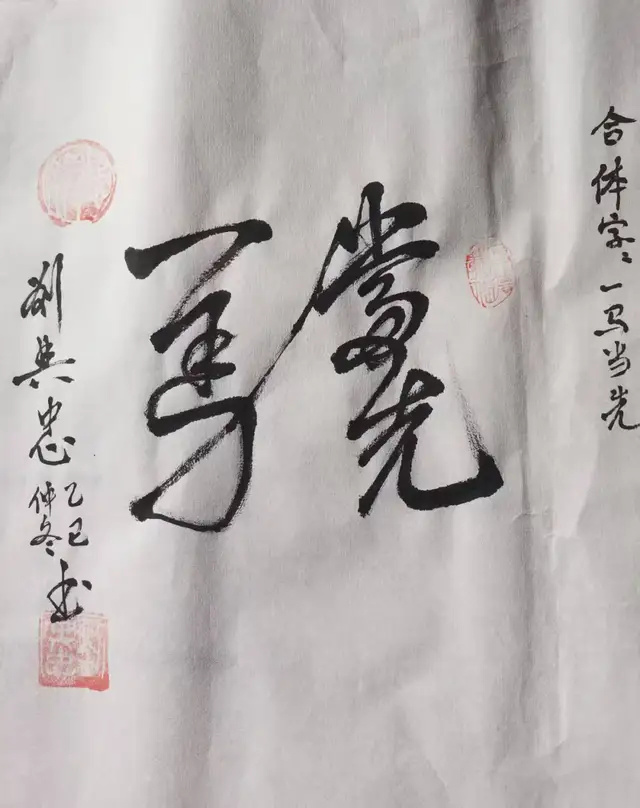 合体字：一马当先
一馬當先
刘兴忠
乙巳
仲冬
书